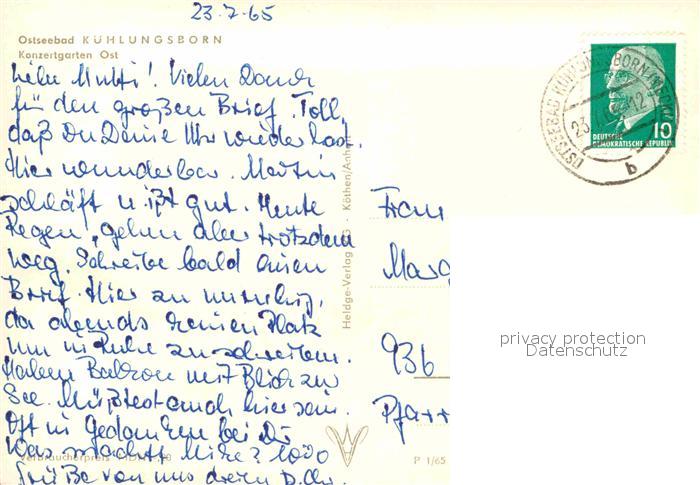 23.7.65
Ostseebad KÜHLUNGSBORN
Konzertgarten Ost
Liebe Mutti! Vielen Dank
für den großen Brief. Toll,
daß Du Deine Uhr wieder hast.
Hier wunderbar. Martin
schläft u. ißt gut. Heute
Regen, gehen aber trotzdem
weg. Schreibe bald einen
Brief. Hier zu unruhig,
da abends keinen Platz
um in Ruhe zu schreiben.
Haben Balkon mit Blick zur
See. Müßtest auch hier sein.
Oft in Gedanken bei Dir
Was macht 1000
Grüße von uns dreien
Verbraucherpreis
Heldge-Verlag KG · Köthen/Anhalt
P 1/65
OSTSEEBAD KÜHLUNGSBORN (MECKL)
23
12
b
DEUTSCHE
DEMOKRATISCHE REPUBLIK
10
Frau
Marg
936
Pfarr
privacy protection
Datenschutz